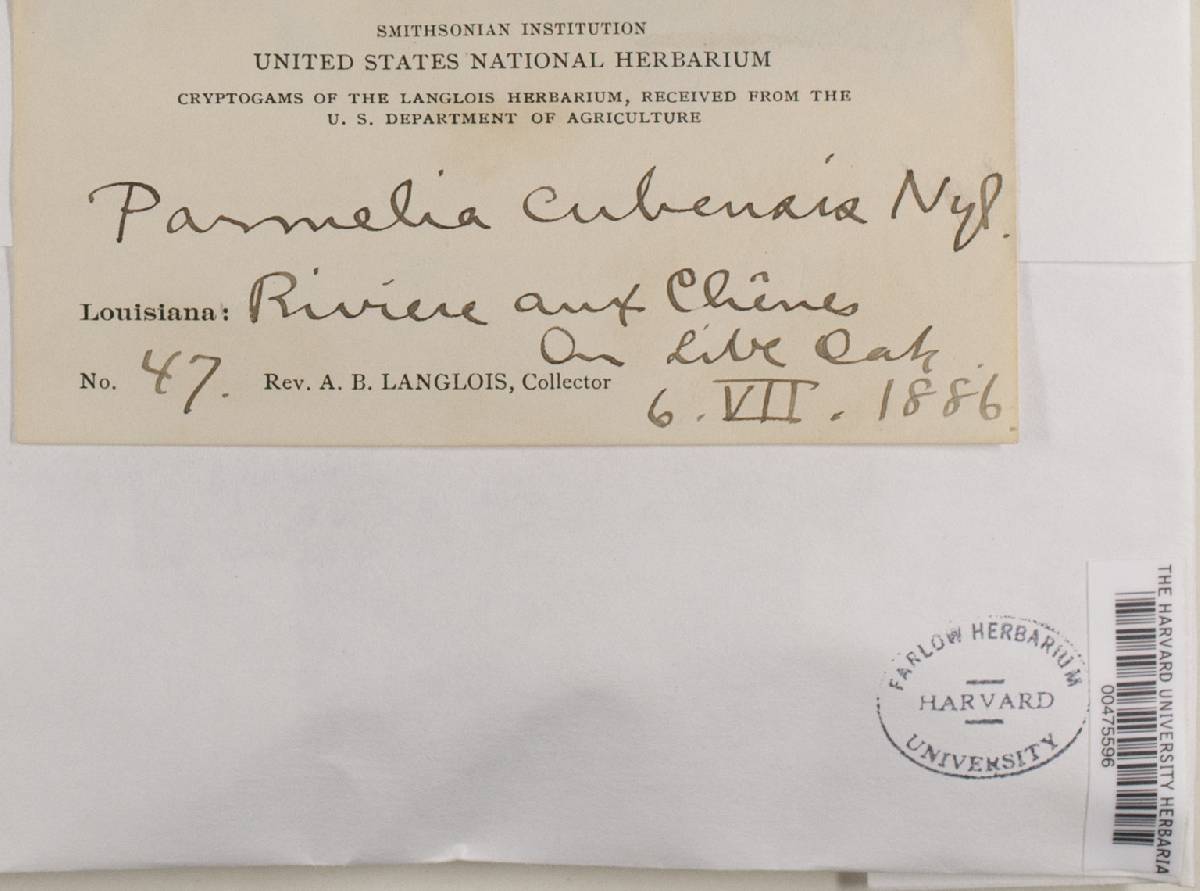 SMITHSONIAN INSTITUTION
UNITED STATES NATIONAL HERBARIUM
CRYPTOGAMS OF THE LANGLOIS HERBARIUM, RECEIVED FROM THE
U. S. DEPARTMENT OF AGRICULTURE
Parmelia cubensis Nyl.
Louisiana: Riviere aux Chênes
On Live Oak.
No. 47. Rev. A. B. LANGLOIS, Collector
6. VII. 1886.
FARLOW HERBARIUM
HARVARD
UNIVERSITY
THE HARVARD UNIVERSITY HERBARIA
00475596